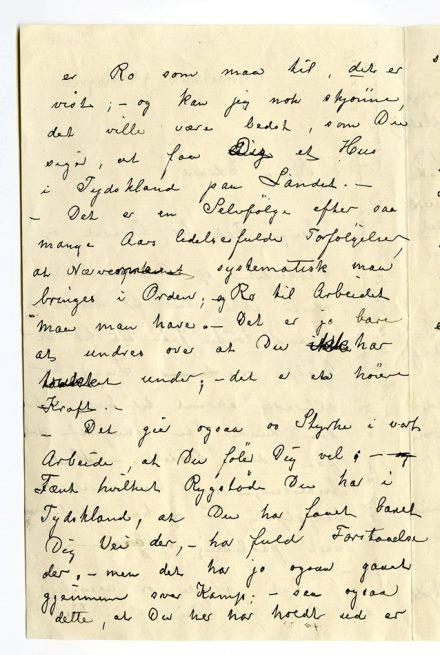 er Ro som maa til, det er
vist; – og kan jeg nok skjönne,
det ville være bedst, som Du
siger, at faa Dig et Hus
i Tydskland paa Landet. –
– Det er en Selvfölge efter saa
mange Aars lidelsesfulde Forfölgelser,
at Nerve systematisk maa
bringes i Orden; og Ro til Arbeidet
maa man have. – Det er jo bare
at undres over at Du ikke har
under; – det er en höiere
Kraft. –
– Det gir ogsaa os Styrke i vort
Arbeide, at Du föler Dig vel; –
Tænk hvilket Rygstöd Du har i
Tydskland, at Du har faaet banet
Dig Vei der, – har fuld Forstaaelse
der, – men det har jo ogsaa gaaet
gjennem svær Kamp; – saa ogsaa
dette, at Du her har holdt ud er